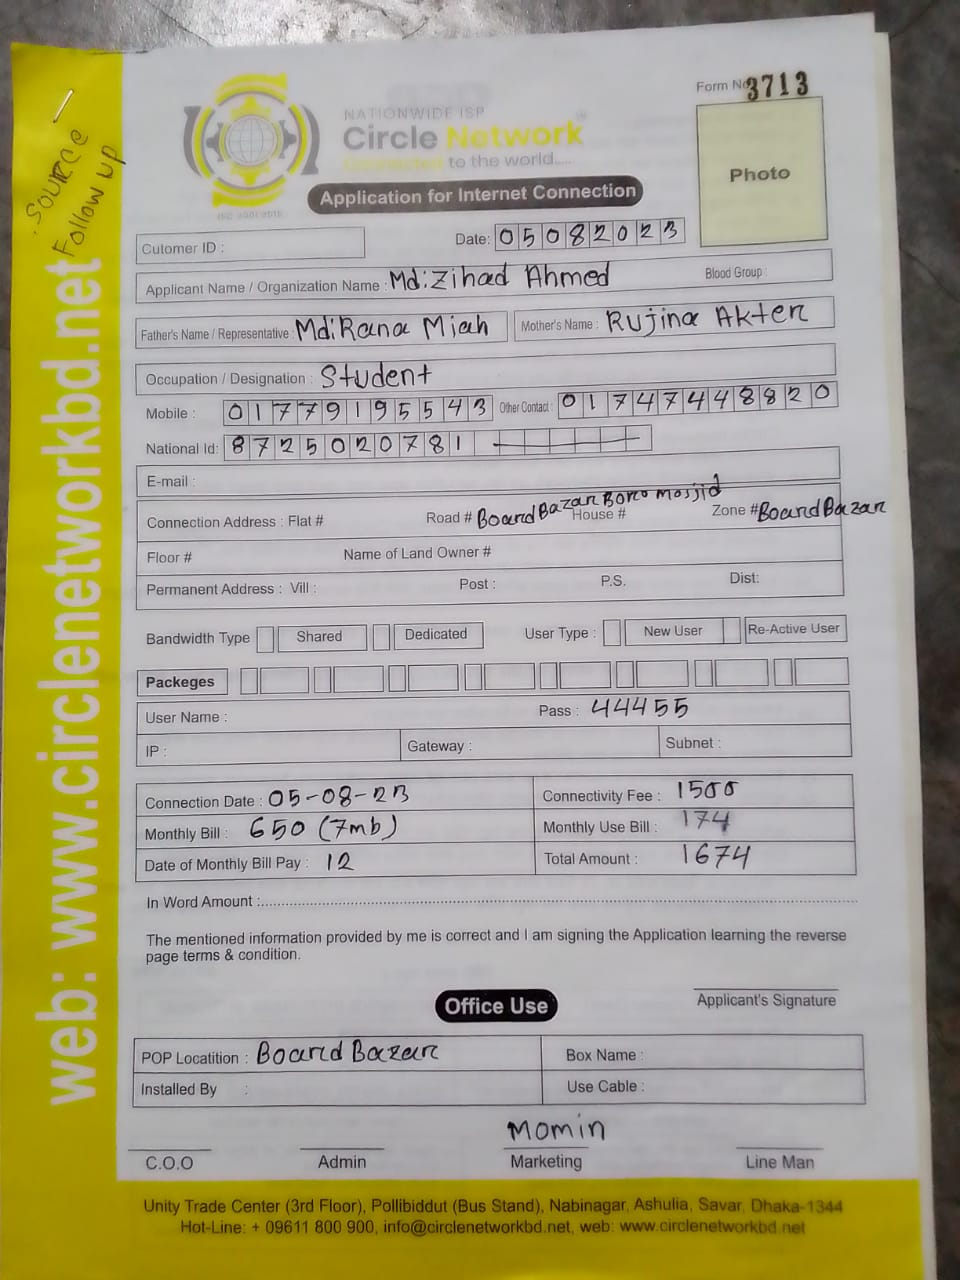 Form No 3713
NATIONWIDE ISP
Circle Network
Connected to the world.....
ISO 9001:2015
Application for Internet Connection
Photo
Source
Follow up
Cutomer ID :
Date: 05082023
Applicant Name / Organization Name : Md:Zihad Ahmed Blood Group :
Father's Name / Representative : Md:Rana Miah Mother's Name : Rujina Akter
Occupation / Designation : Student
Mobile : 01779195543 Other Contact : 01747448820
National Id: 8725020781
E-mail :
Connection Address : Flat # Road # Board Bazar Boro Masjid House # Zone # Board Bazar
Floor # Name of Land Owner #
Permanent Address : Vill : Post : P.S. Dist:
Bandwidth Type Shared Dedicated User Type : New User Re-Active User
Packeges
User Name : Pass : 44455
IP : Gateway : Subnet :
Connection Date : 05-08-23 Connectivity Fee : 1500
Monthly Bill : 650 (7mb) Monthly Use Bill : 174
Date of Monthly Bill Pay : 12 Total Amount : 1674
In Word Amount :
The mentioned information provided by me is correct and I am signing the Application learning the reverse
page terms & condition.
Applicant's Signature
Office Use
POP Locatition : Board Bazar Box Name :
Installed By : Use Cable :
Momin
C.O.O Admin Marketing Line Man
Unity Trade Center (3rd Floor), Pollibiddut (Bus Stand), Nabinagar, Ashulia, Savar, Dhaka-1344
Hot-Line: + 09611 800 900, info@circlenetworkbd.net, web: www.circlenetworkbd.net
web: www.circlenetworkbd.net